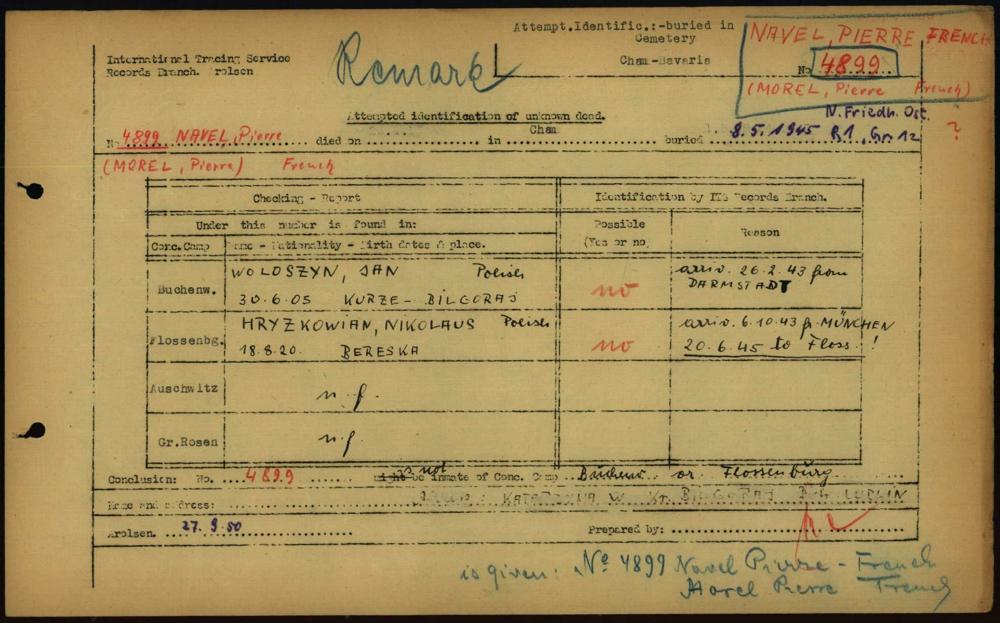 Attempt.Identific.:-buried in
Cemetery
Cham-Bavaria
NAVEL, PIERRE FRENCH
No 4899
(MOREL, Pierre French)
International Tracing Service
Records Branch. Arolsen
Remark
N. Friedh. Ost.
Attempted identification of unknown dead.
No 4899 NAVEL, Pierre died on .......... in Cham buried 8.5.1945 B1, Gr. 12 ?
(MOREL, Pierre) French
Checking - Report
Identification by ITS Records Branch.
Under this number is found in:
Possible
(Yes or no)
Reason
Conc.Camp
Name - Nationality - Birth dates & place.
Buchenw.
WOLOSZYN, JAN Polish
30.6.05 KURZE - BILGORAJ
no
arriv. 26.2.43 from
DARMSTADT
Flossenbg.
HRYZKOWIAN, NIKOLAUS Polish
18.8.20. BERESKA
no
arriv. 6.10.43 fr. MÜNCHEN
20.6.45 to Floss. !
Auschwitz
n.f.
Gr.Rosen
n.f.
Conclusion: No. ... 4899 might be is not inmate of Conc. Camp Buchenw. or Flossenburg
Home and address: KATARZYNA W. Kr. BILGORAJ LUBLIN
Arolsen. 27. 9. 50 Prepared by:
is given: No 4899 Navel Pierre - French
Morel Pierre French